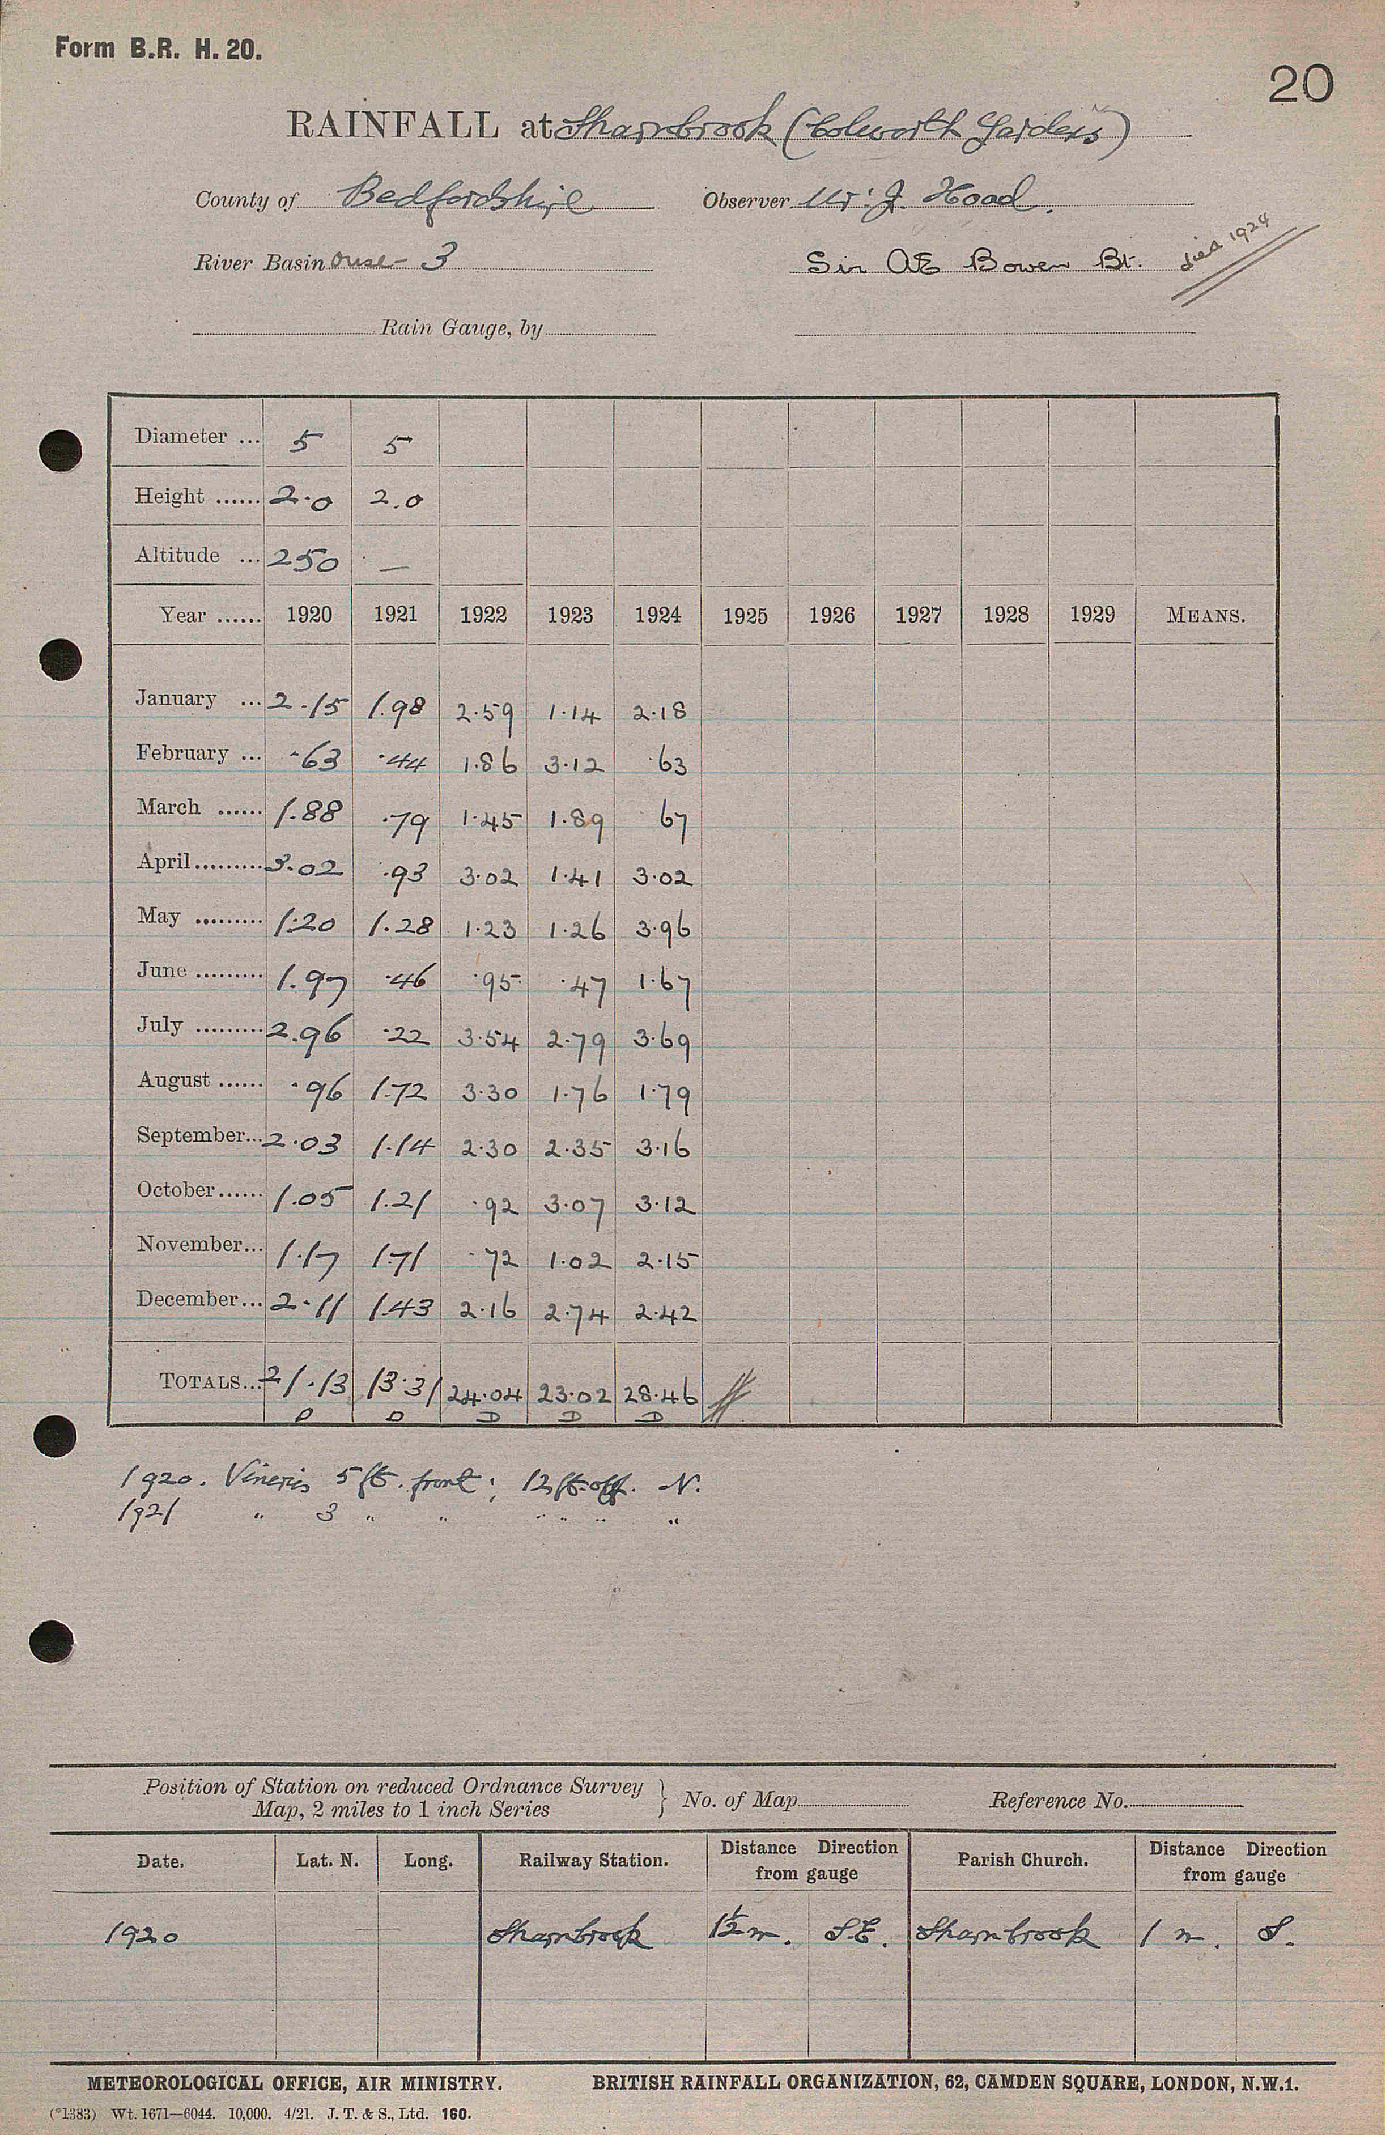 Form B.R. H. 20.
20
RAINFALL at Sharnbrook (Colworth Gardens)
County of Bedfordshire Observer Mr. J. Hoad.
River Basin Ouse - 3 Sir AE Bowen Bt. died 1924
Rain Gauge, by
Diameter ... 5 5
Height ...... 2.0 2.0
Altitude ... 250 —
Year ...... 1920 1921 1922 1923 1924 1925 1926 1927 1928 1929 MEANS.
January ... 2.15 1.98 2.59 1.14 2.18
February ... .63 .44 1.86 3.12 .63
March ...... 1.88 .79 1.45 1.89 67
April ......... 3.02 .93 3.02 1.41 3.02
May ......... 1.20 1.28 1.23 1.26 3.96
June ......... 1.97 .46 .95 .47 1.67
July ......... 2.96 .22 3.54 2.79 3.69
August ...... .96 1.72 3.30 1.76 1.79
September... 2.03 1.14 2.30 2.35 3.16
October...... 1.05 1.21 .92 3.07 3.12
November... 1.17 1.71 .72 1.02 2.15
December... 2.11 1.43 2.16 2.74 2.42
TOTALS... 21.13 13.31 24.04 23.02 28.46
D D D D D
1920. Vineries 5 ft. front; 12 ft. off. N.
1921 " 3 " " " " " "
Position of Station on reduced Ordnance Survey
Map, 2 miles to 1 inch Series } No. of Map Reference No.
Date. Lat. N. Long. Railway Station. Distance Direction from gauge Parish Church. Distance Direction from gauge
1920 Sharnbrook 1½ m. S.E. Sharnbrook 1 m. S.
METEOROLOGICAL OFFICE, AIR MINISTRY. BRITISH RAINFALL ORGANIZATION, 62, CAMDEN SQUARE, LONDON, N.W.1.
(*1383) Wt. 1671—6044. 10,000. 4/21. J. T. & S., Ltd. 160.